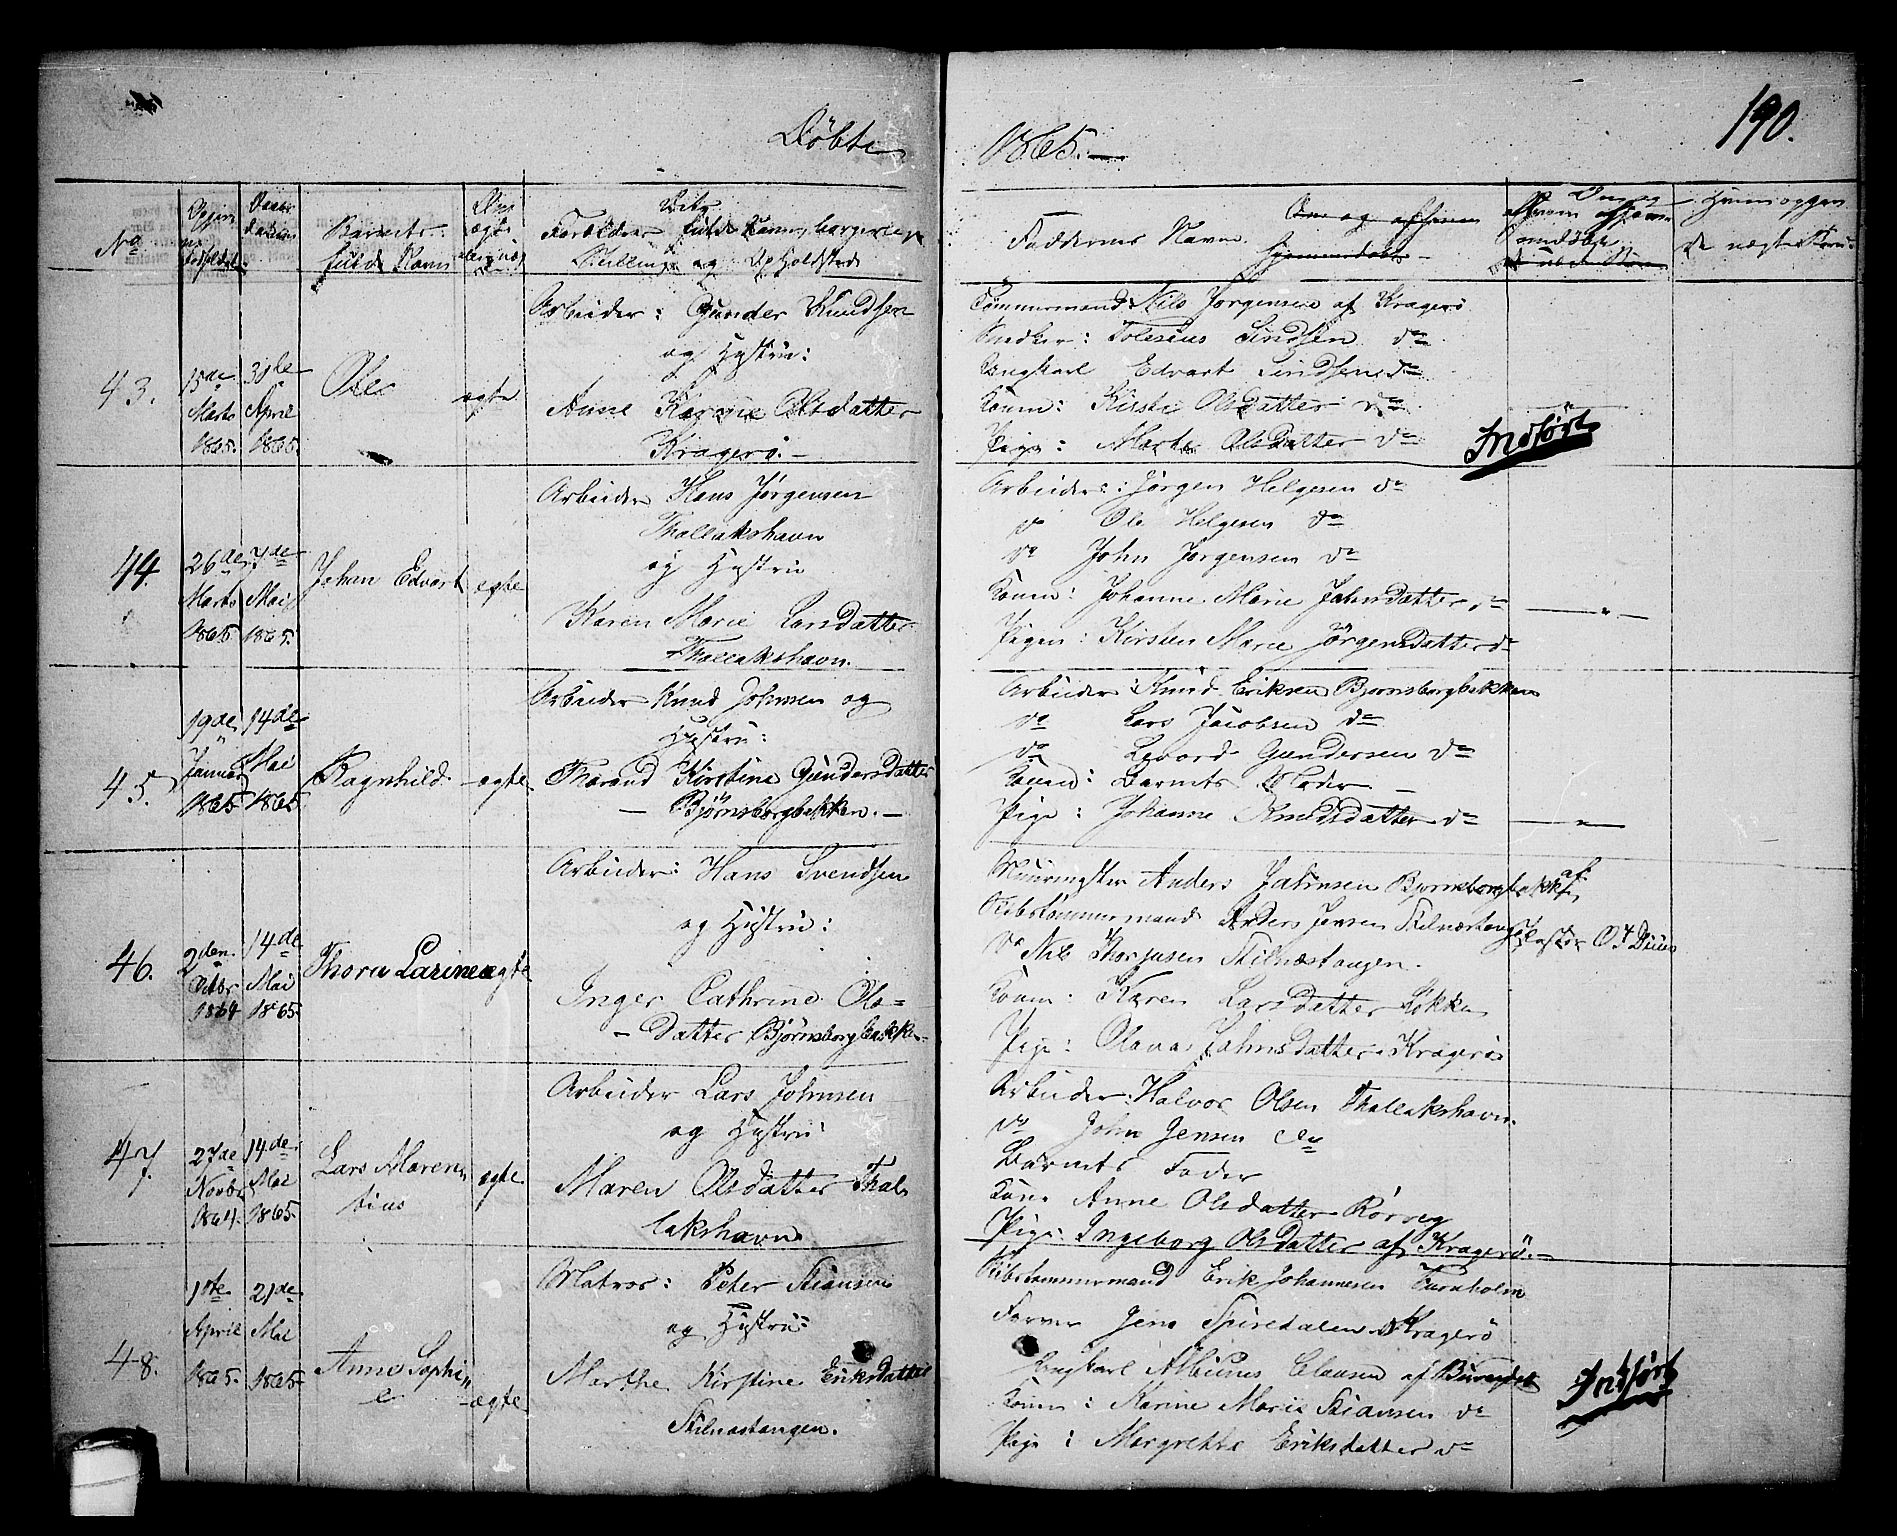 Døbte
1865.
190.
No
Barnets
fulde Navn
Forældres fulde Navn, borgerlige
Stilling og Opholdsted
Faddernes Navn
43.
15de
Marts
1865.
30te
April
1865.
Ole
egte
Arbeider: Gunder Knudsen
og Hustru:
Anne Karine Olsdatter
Kragerø.
Tømmermand Nils Jørgensen af Kragerø
Snedker: Tolesius Lindsen do
Ungkarl Edvart Lindsen do
Konen: Kirsti Olsdatter do
Pige: Marte Olsdatter do
Indført
44
26de
Marts
1865
7de
Mai
1865.
Johan Edvart
egte
Arbeider Hans Jørgensen
Thollakshavn
og Hustru
Karen Marie Larsdatter
Thollakshavn.
Arbeider: Jørgen Helgesen do
do Ole Helgesen do
do John Jørgensen do
Konen: Johanne Marie Johnsdatter do
Pigen: Kirsten Marie Jørgensdatter do
45.
19de
Januar
1865
14de
Mai
1865
Ragnhild
egte
Arbeider Knud Johnsen og
Hustru:
Tharand Kirstine Gundersdatter
Bjørnsborgbakken.
Arbeider: Knud Eriksen Bjørnsborgbakken
do Lars Jacobsen do
do Levord Gundersen do
Konen: Barnets Moder
Pige: Johanne Knudsdatter do
46.
2den
Octbr
1864
14de
Mai
1865.
Thora Larine
egte
Arbeider: Hans Svendsen
og Hustru:
Inger Cathrine Ols-
datter Bjørnsborgbakken
Muurmester Anders Johnsen Bjørnsborgbakk
Skibstømmermand Anders Jensen Stilnæstangen
do Nils Thorjusen Stilnæstangen.
Konen: Karen Larsdatter Løkka
Pige: Olava Johnsdatter Kragerø
af
Pastor O. T. Duus
47.
27de
Novbr
1864.
14de
Mai
1865.
Lars Maren
tius
egte
Arbeider Lars Johnsen
og Hustru:
Maren Olsdatter Thol
lakshavn
Arbeider: Halvor Olsen Thollakshavn.
do John Jensen do
Barnets Fader
Kone Anne Olsdatter Rørvig
Pige: Ingeborg Olsdatter af Kragerø.
48.
1ste
April
1865.
21de
Mai
1865.
Anne Sophi
e
egte
Matros: Peter Stiansen
og Hustru:
Marthe Kirstine Eriksdatter
Stilnæstangen.
Skibstømmermand Erik Johannesen Furuholm
Farver Jens Spiredalen Kragerø
Ungkarl Albinus Clausen af
Konen: Karine Marie Stiansen do
Pige: Margrethe Eriksdatter do
Indført